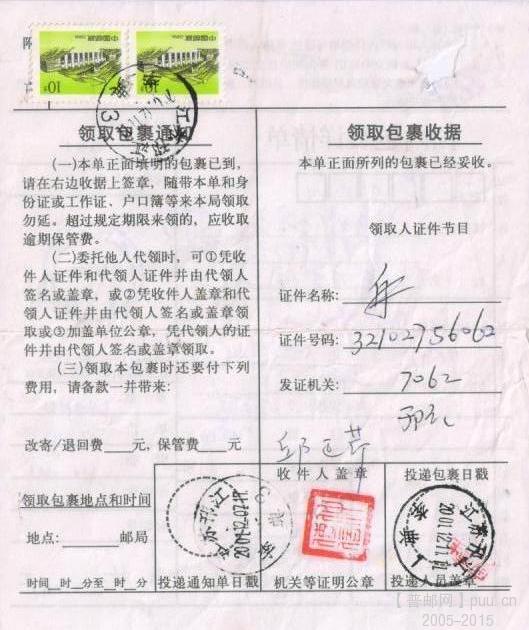 中国邮政 CHINA
10分
中国邮政 CHINA
10分
领取包裹通知
(一)本单正面填明的包裹已到,
请在右边收据上签章,随带本单和身
份证或工作证、户口簿等来本局领取
勿延。超过规定期限来领的,应收取
逾期保管费。
(二)委托他人代领时,可①凭收
件人证件和代领人证件并由代领人
签名或盖章,或②凭收件人盖章和代
领人证件并由代领人签名或盖章领
取或③加盖单位公章,凭代领人的证
件并由代领人签名或盖章领取。
(三)领取本包裹时还要付下列
费用,请备款一并带来:
改寄/退回费__元,保管费__元。
领取包裹收据
本单正面所列的包裹已经妥收。
领取人证件节目
证件名称:
证件号码:32102756062
发证机关:7062
收件人盖章
投递包裹日戳
领取包裹地点和时间
地点:____邮局
时间__时__分至__时__分
投递通知单日戳
机关等证明公章
投递人员盖章
江苏邗江
2001.12.11
【普邮网】puu.cn
2005-2015